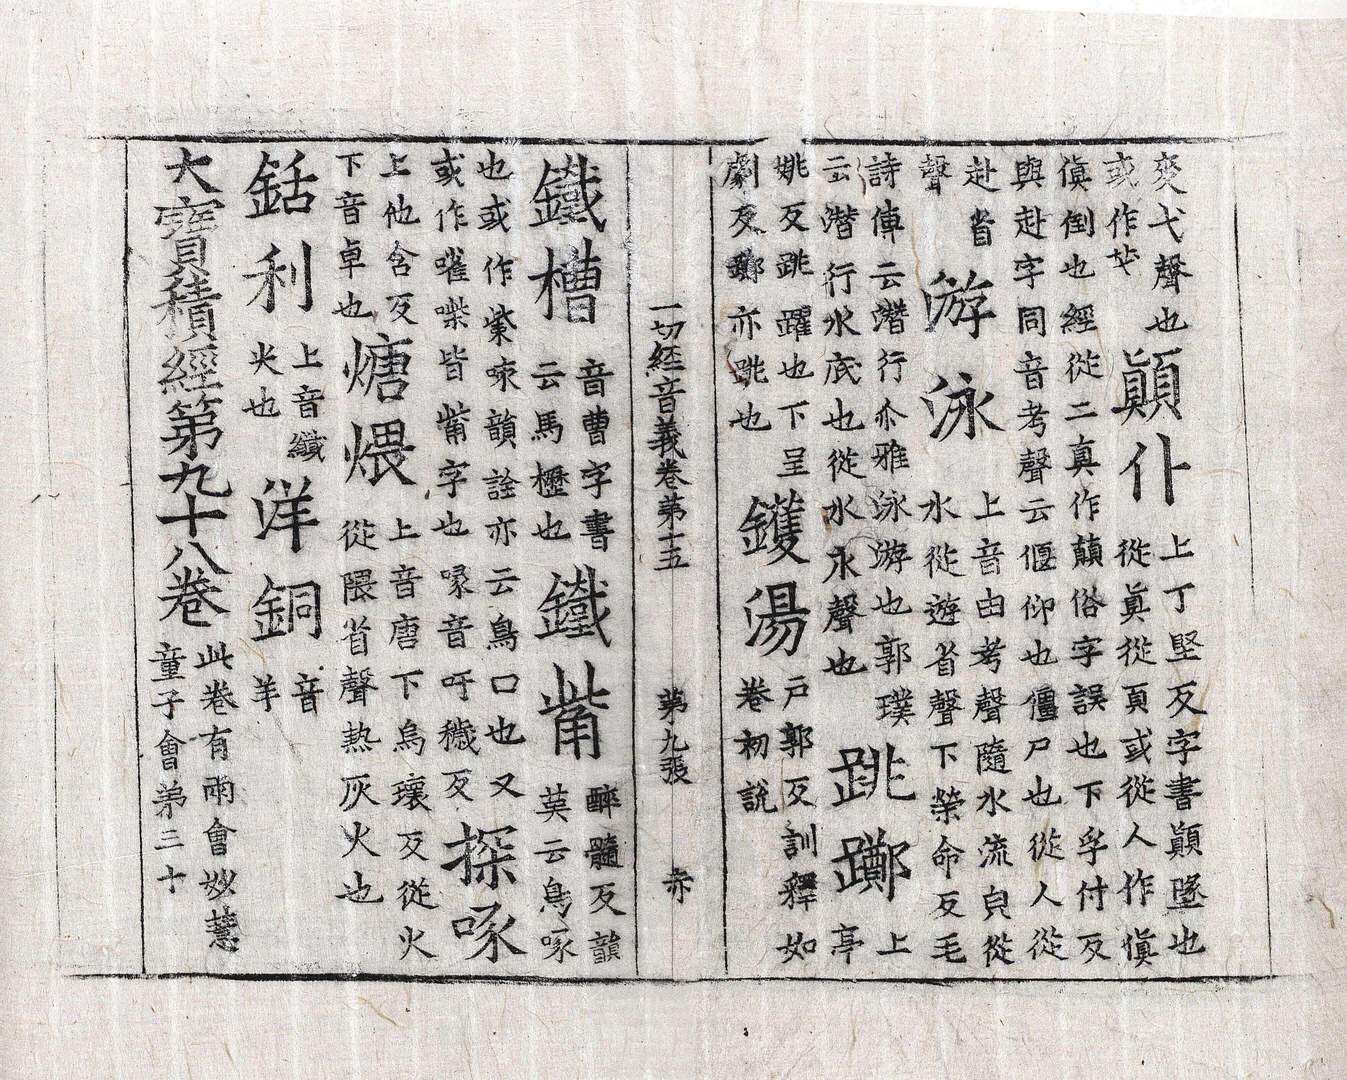 爽弋聲也
或作𡗗
顚仆
上丁堅反字書顚墜也
從眞從頁或從人作傎
傎倒也經從二真作顛俗字誤也下孚付反
與赴字同音考聲云偃仰也僵尸也從人從
赴省
聲
游泳
上音由考聲隨水流皃從
水從遊省聲下榮命反毛
詩傳云潛行尒雅泳游也郭璞
云潛行水底也從水永聲也
跳躑
上
亭
姚反跳躍也下呈
劇反躑亦跳也
鑊湯
戶郭反訓釋如
卷初說
一切經音義卷第十五 第九張 赤
鐵槽
音曹字書
云馬櫪也
鐵觜
醉髓反韻
英云鳥喙
也或作㭰㖢韻詮亦云鳥口也又
或作嗺㗪皆觜字也喙音吁穢反
探啄
上他含反
下音卓也
煻煨
上音唐下烏瓌反從火
從隈省聲熱灰火也
銛利
上音纖
火也
洋銅
音
羊
大寶積經第九十八卷
此卷有兩會妙慧
童子會第三十